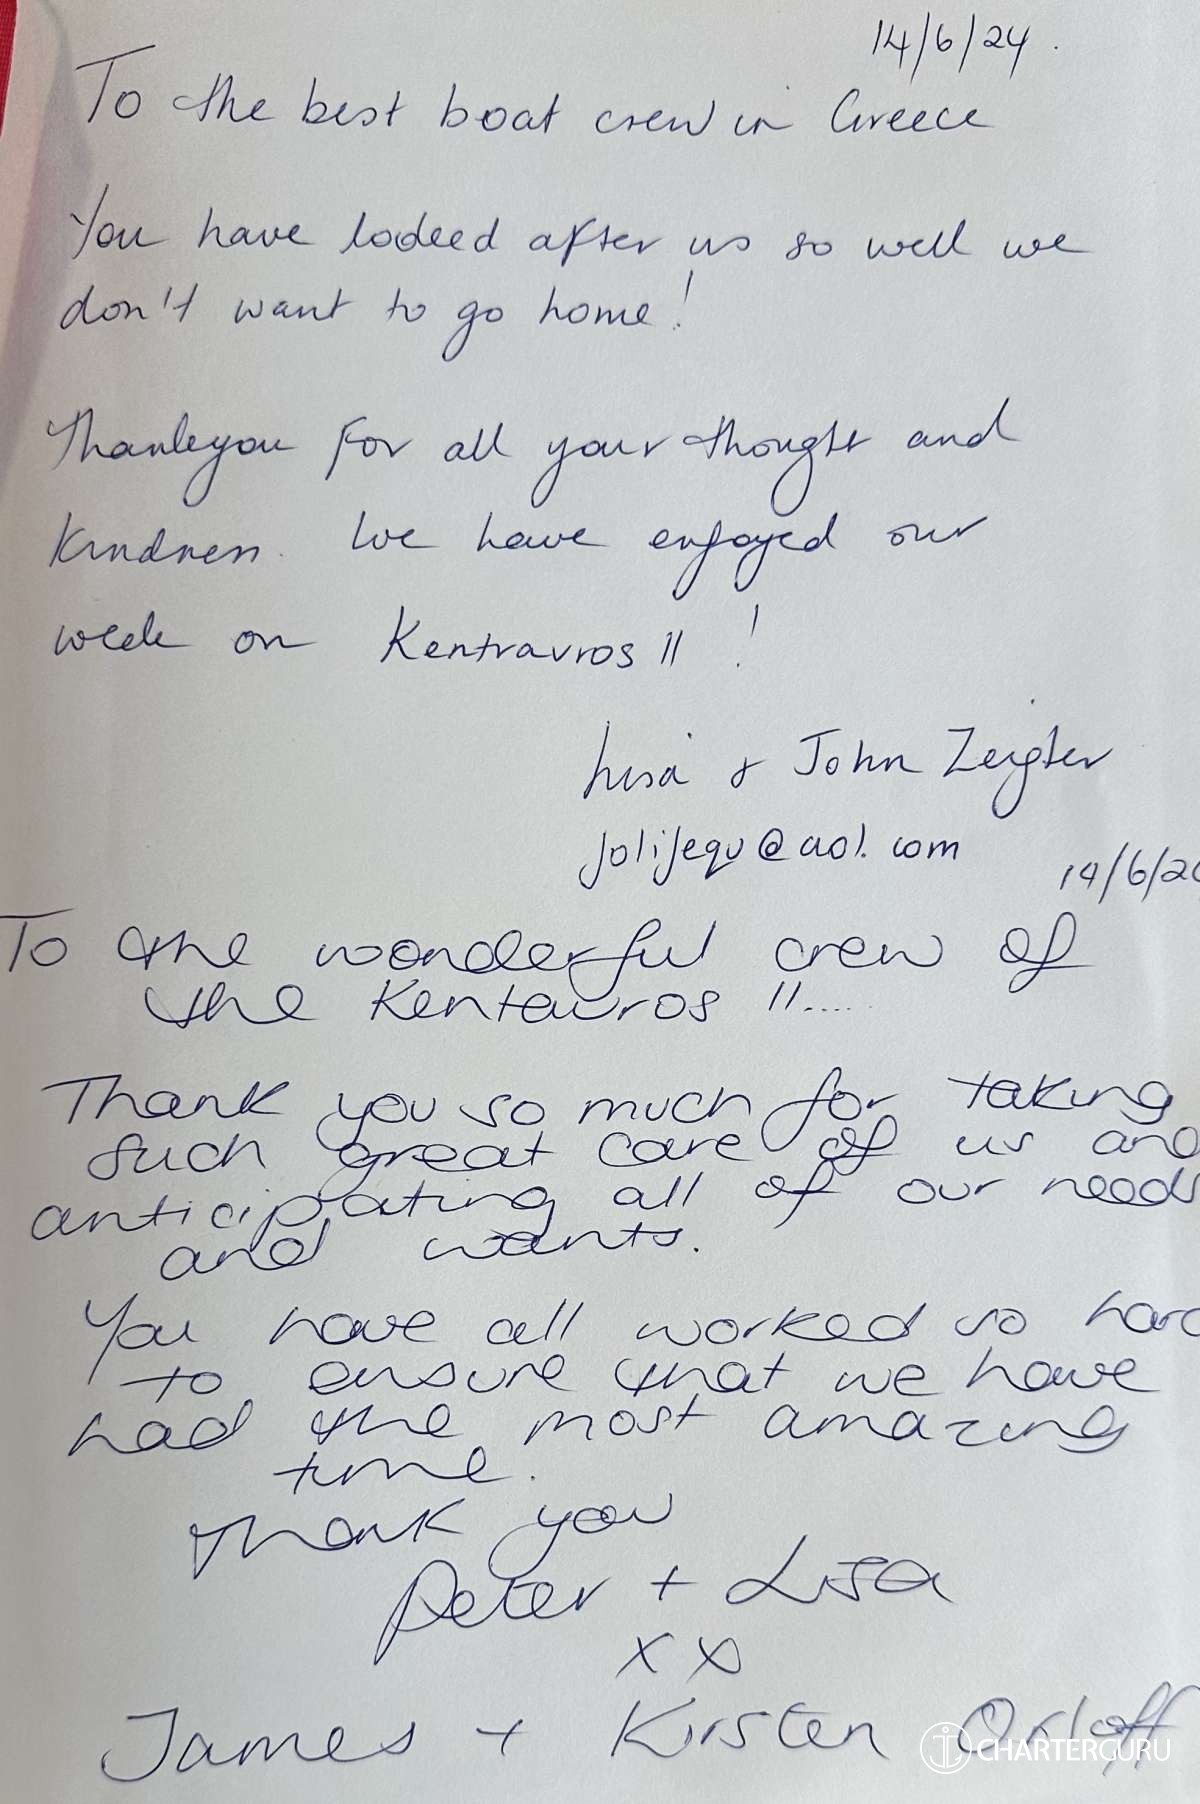 14/6/24.
To the best boat crew in Greece
You have looked after us so well we
don't want to go home!
Thankyou for all your thought and
kindness. We have enjoyed our
week on Kentravros II !
Lisa & John Zeigler
jolijequ@aol.com
14/6/20
To the wonderful crew of
the Kentauros II....
Thank you so much for taking
such great care of us and
anticipating all of our needs
and wants.
You have all worked so hard
to ensure that we have
had the most amazing
time.
Thank you
Peter + Lisa
xx
James + Kirsten Orloff
CHARTERGURU